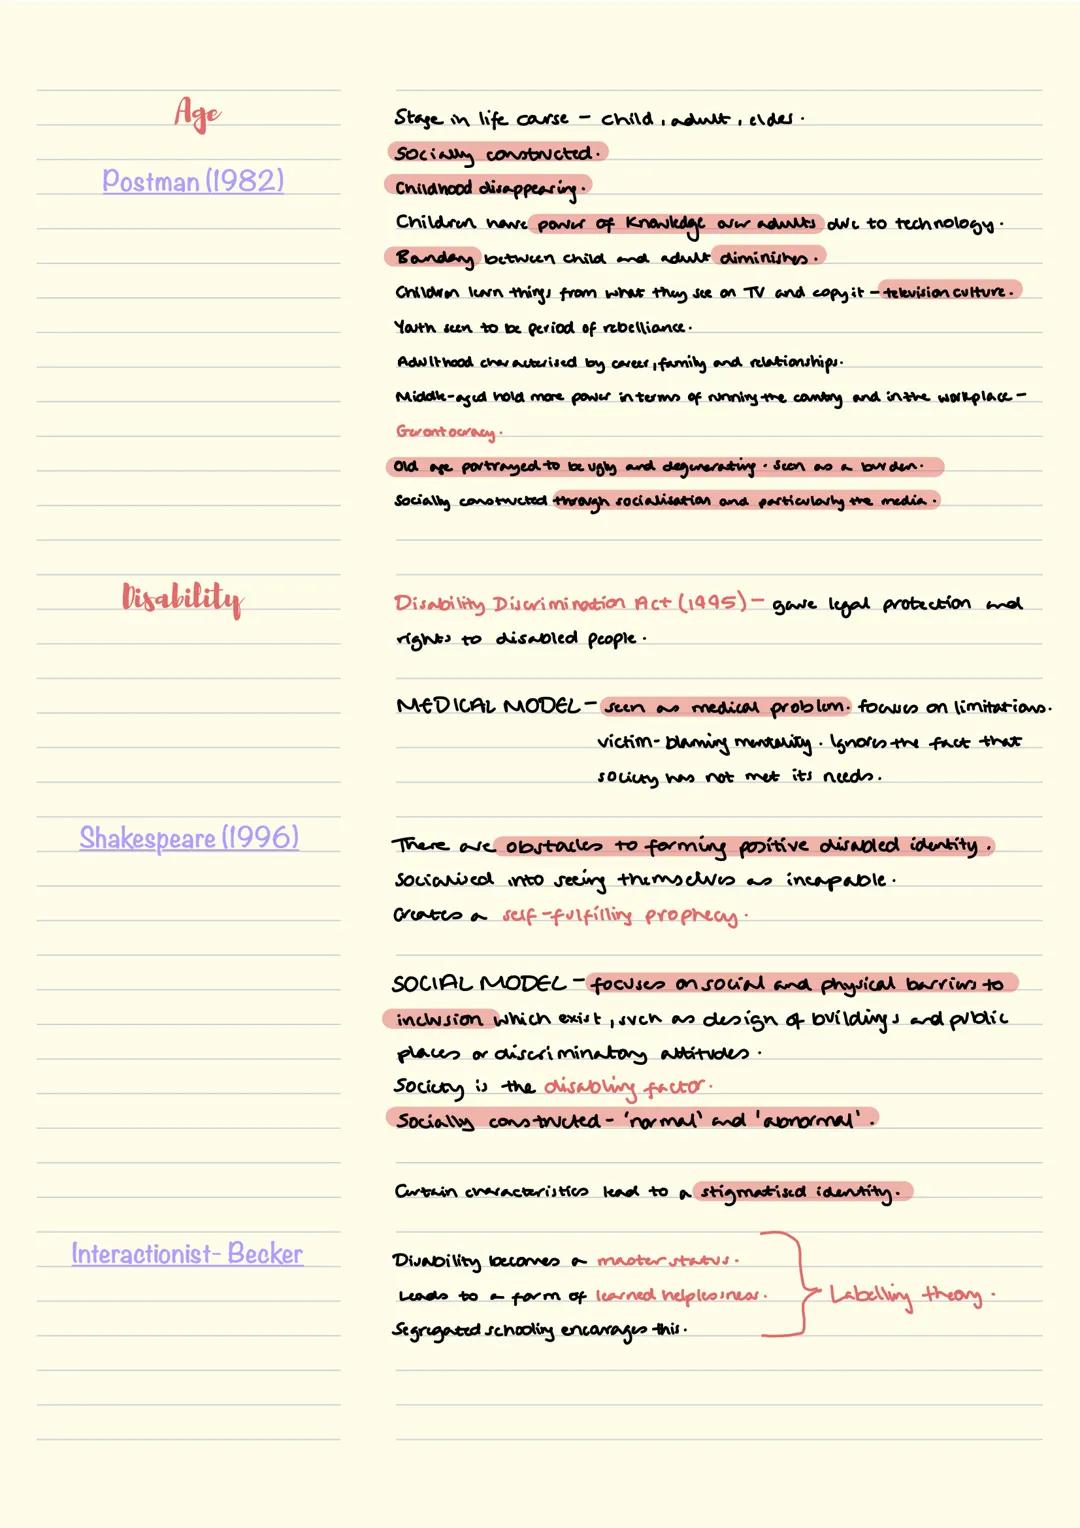 Age
Stage in life course - child, adult, elder.
Socially constructed.
Postman (1982)
Childhood disappearing.
Children have power of knowledge over adults due to technology.
Boundary between child and adult diminishes.
Children learn things from what they see on TV and copy it - television culture.
Youth seen to be period of rebelliance.
Adulthood characterised by career, family and relationships.
Middle-aged hold more power in terms of running the country and in the workplace -
Gerontocracy.
Old age portrayed to be ugly and degenerating. Seen as a burden.
Socially constructed through socialisation and particularly the media.
Disability
Disability Discrimination Act (1995) - gave legal protection and
rights to disabled people.
MEDICAL MODEL - seen as medical problem. focuses on limitations.
victim-blaming mentality. Ignores the fact that
society has not met its needs.
Shakespeare (1996)
There are obstacles to forming positive disabled identity.
Socialised into seeing themselves as incapable.
Creates a self-fulfilling prophecy.
SOCIAL MODEL - focuses on social and physical barriers to
inclusion which exist, such as design of buildings and public
places or discriminatory attitudes.
Society is the disabling factor.
Socially constructed - 'normal' and 'abnormal'.
Certain characteristics lead to a stigmatised identity.
Interactionist- Becker
Disability becomes a master status.
Leads to a form of learned helplessness.
Labelling theory.
Segregated schooling encourages this.